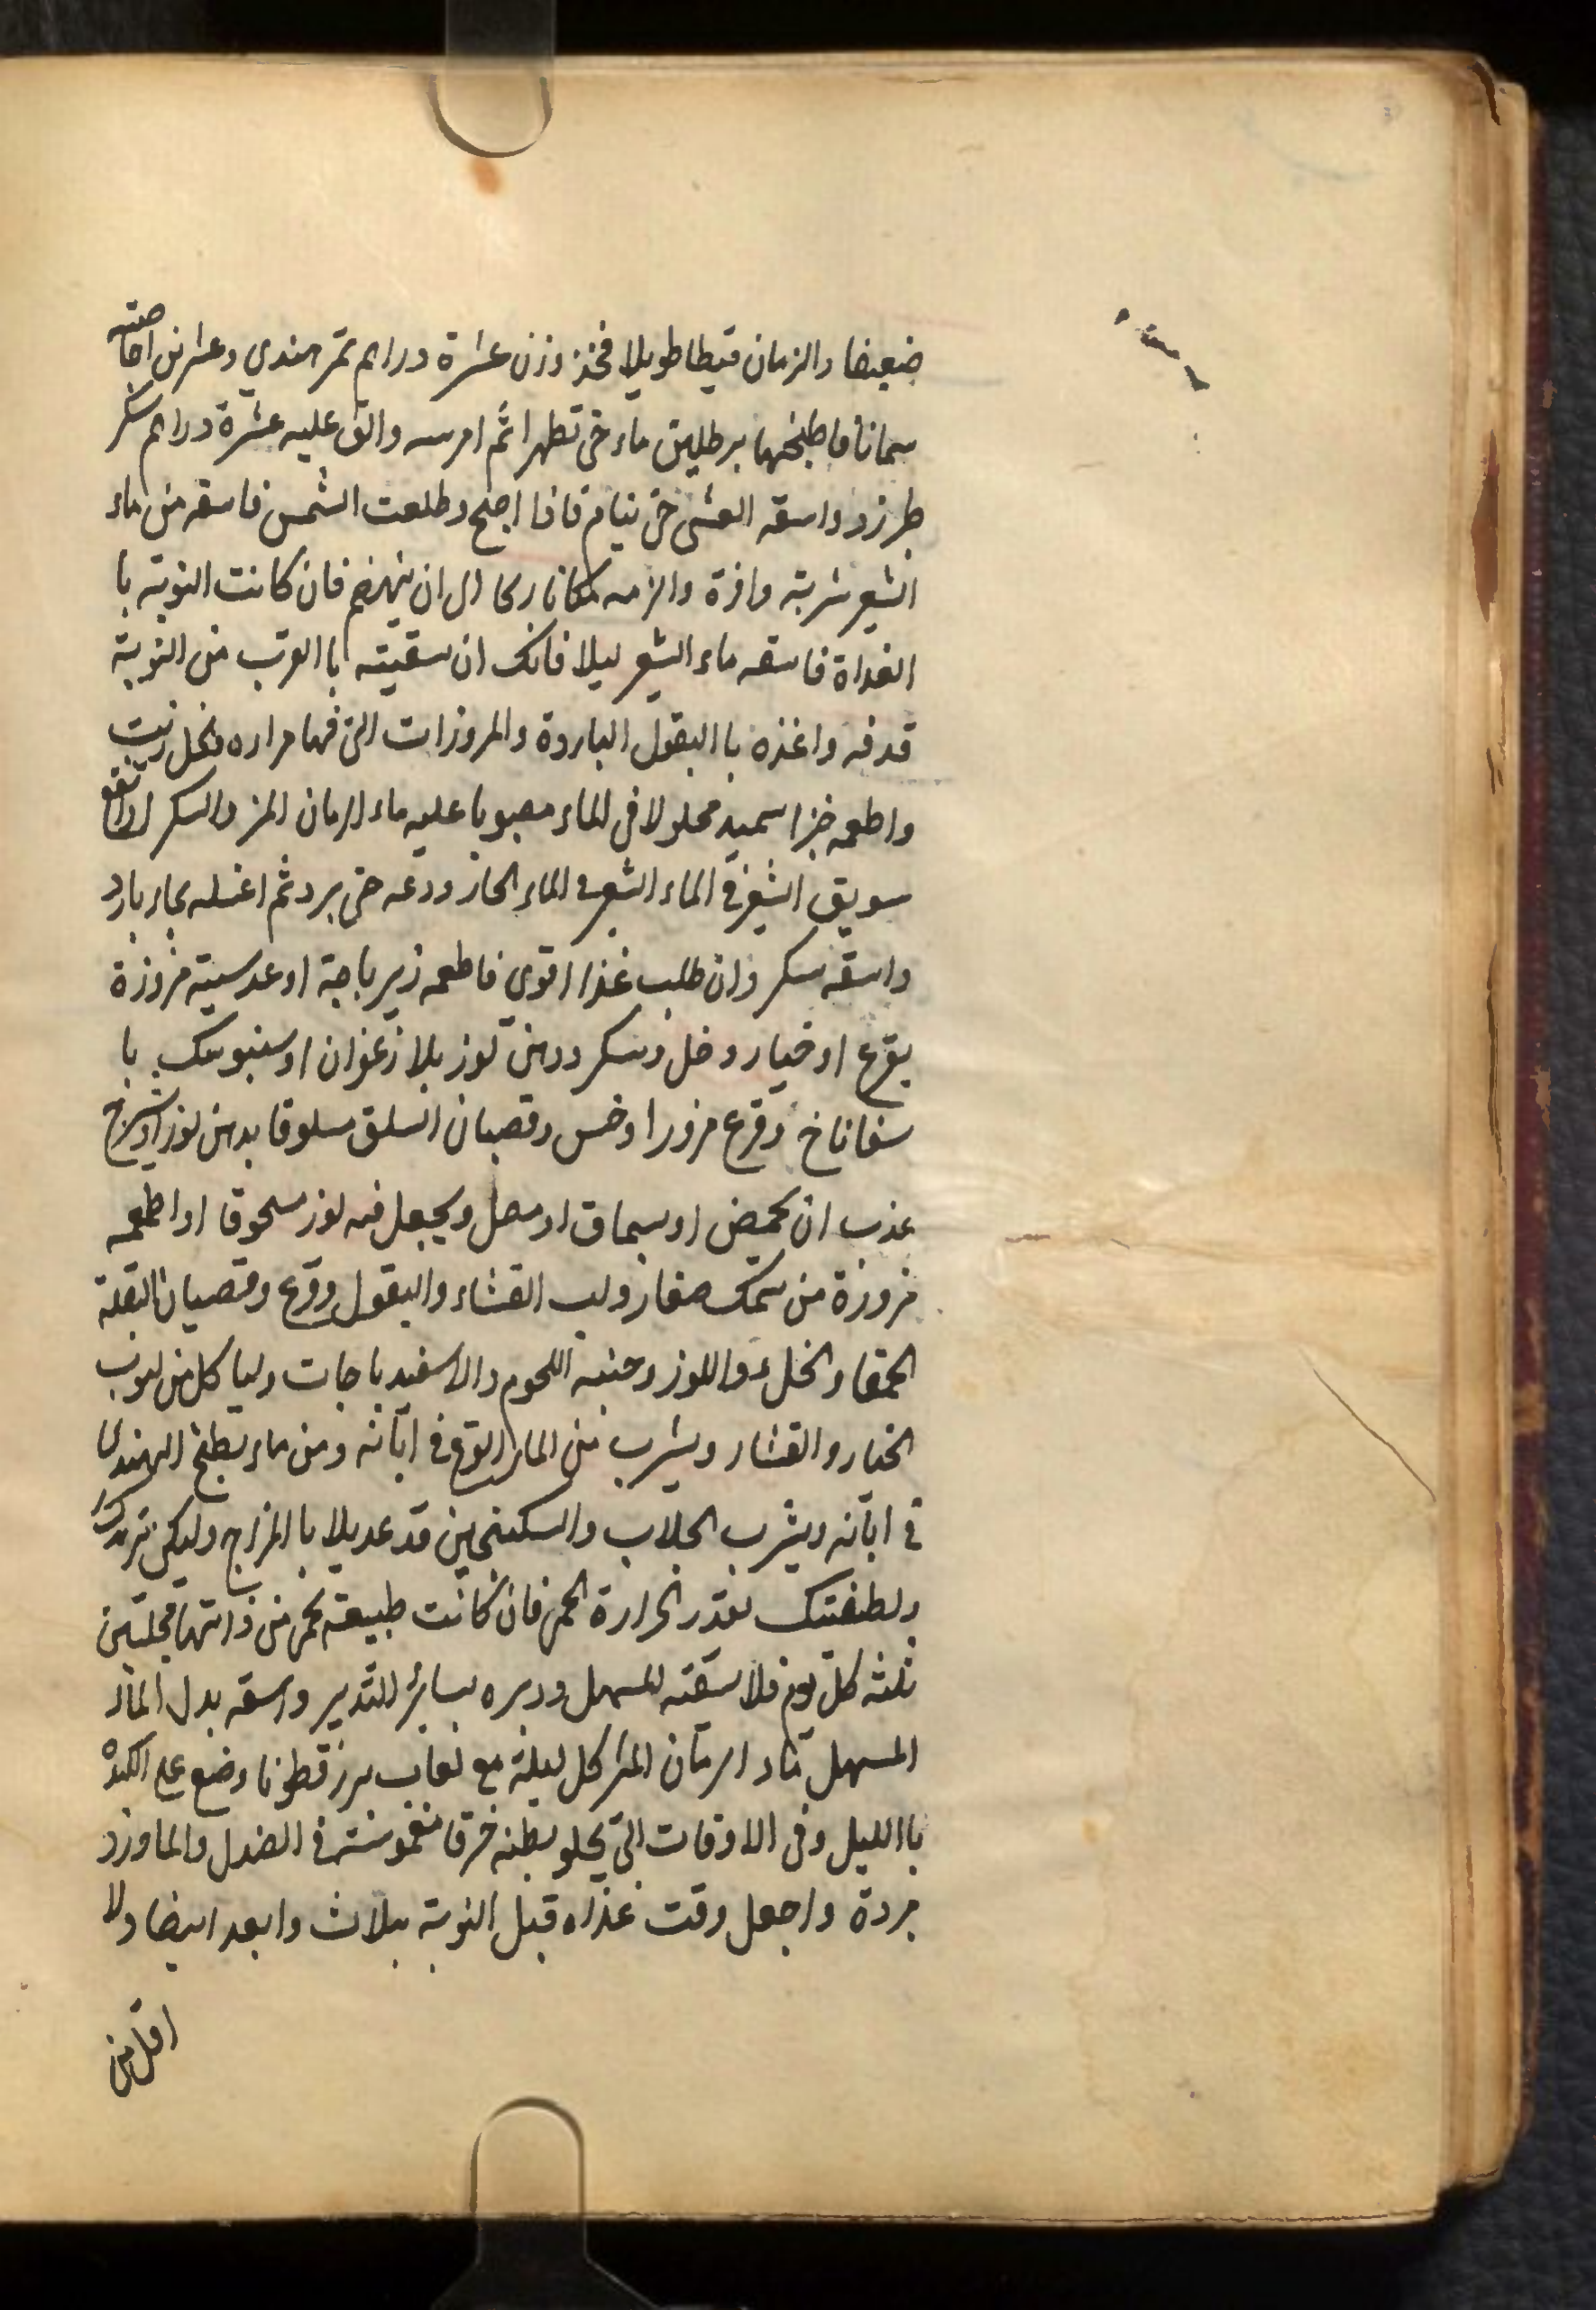 ضعيفا والزمان قيظا طويلا فخذ وزن عشرة دراهم تمر هندي وعشرين اجاصته
سمانا فاطبخهما برطلين ماء حتى تطهرا ثم امرسه والق عليه عشرة دراهم سكر
طبرزد واسقه العشى حتى ينام فاذا اصبح وطلعت الشمس فاسقه من ماء
الشعير شربة وافرة والزمه مكانا باردا الى ان ينهضم فان كانت النوبة با
الغداة فاسقه ماء الشعير ليلا فانك ان سقيته با القرب من النوبة
قذفه واغذه با البقول الباردة والمزورات التى فيها مراره وخل زيت
واطعمه خبزا سميد محلولا فى الماء مصبوبا عليه ماء الرمان المز والسكر او انقع
سويق الشعير فى الماء الشعير فى الماء الحار ودعه حتى يبرد ثم اغسله بماء بارد
واسقه سكر وان طلب غذا اقوى فاطعمه زيرباجة او عدسية مزورة
بقرع او خيار وخل وسكر ودهن لوز بلا زعفران او سنبوسك با
سفاناخ وقرع مزورا وخس وقضبان السلق سلوقا بدهن لوز او شيرج
عذب ان بحمض او بسماق او مصل ويجعل فيه لوز مسحوقا او اطعمه
مزورة من سمك صغار ولب القثاء والبقول وقرع وقضبان البقلة
الحمقا والخل واللوز وجنبه اللحوم والاسفيدباجات ولياكل من لبوب
الخيار والقثاء ويشرب من الماء القرع فى ابانه ومن ماء بطيخ الهندى
فى ابانه ويشرب الجلاب والسكنجبين قد عديلا با المزاج وليكن تبريدك
وتطفيتك بقدر الحرارة الحمى فان كانت طبيعة تحمى من ذاتها مجلسين
ثلثه كل يوم فلا تسقه المسهل ودبره بسائر التدبير واسقه بدل الماء
المسهل ماء الرمان المز كل ليلة مع لعاب بزر قطونا وضع على الكبد
با الليل وفى الاوقات التى يخلو بطنه خرقا مغموسة فى الصندل والماورد
مبردة واجعل وقت غذاه قبل النوبة بثلاث وابعد ايضا ولا
اقل من